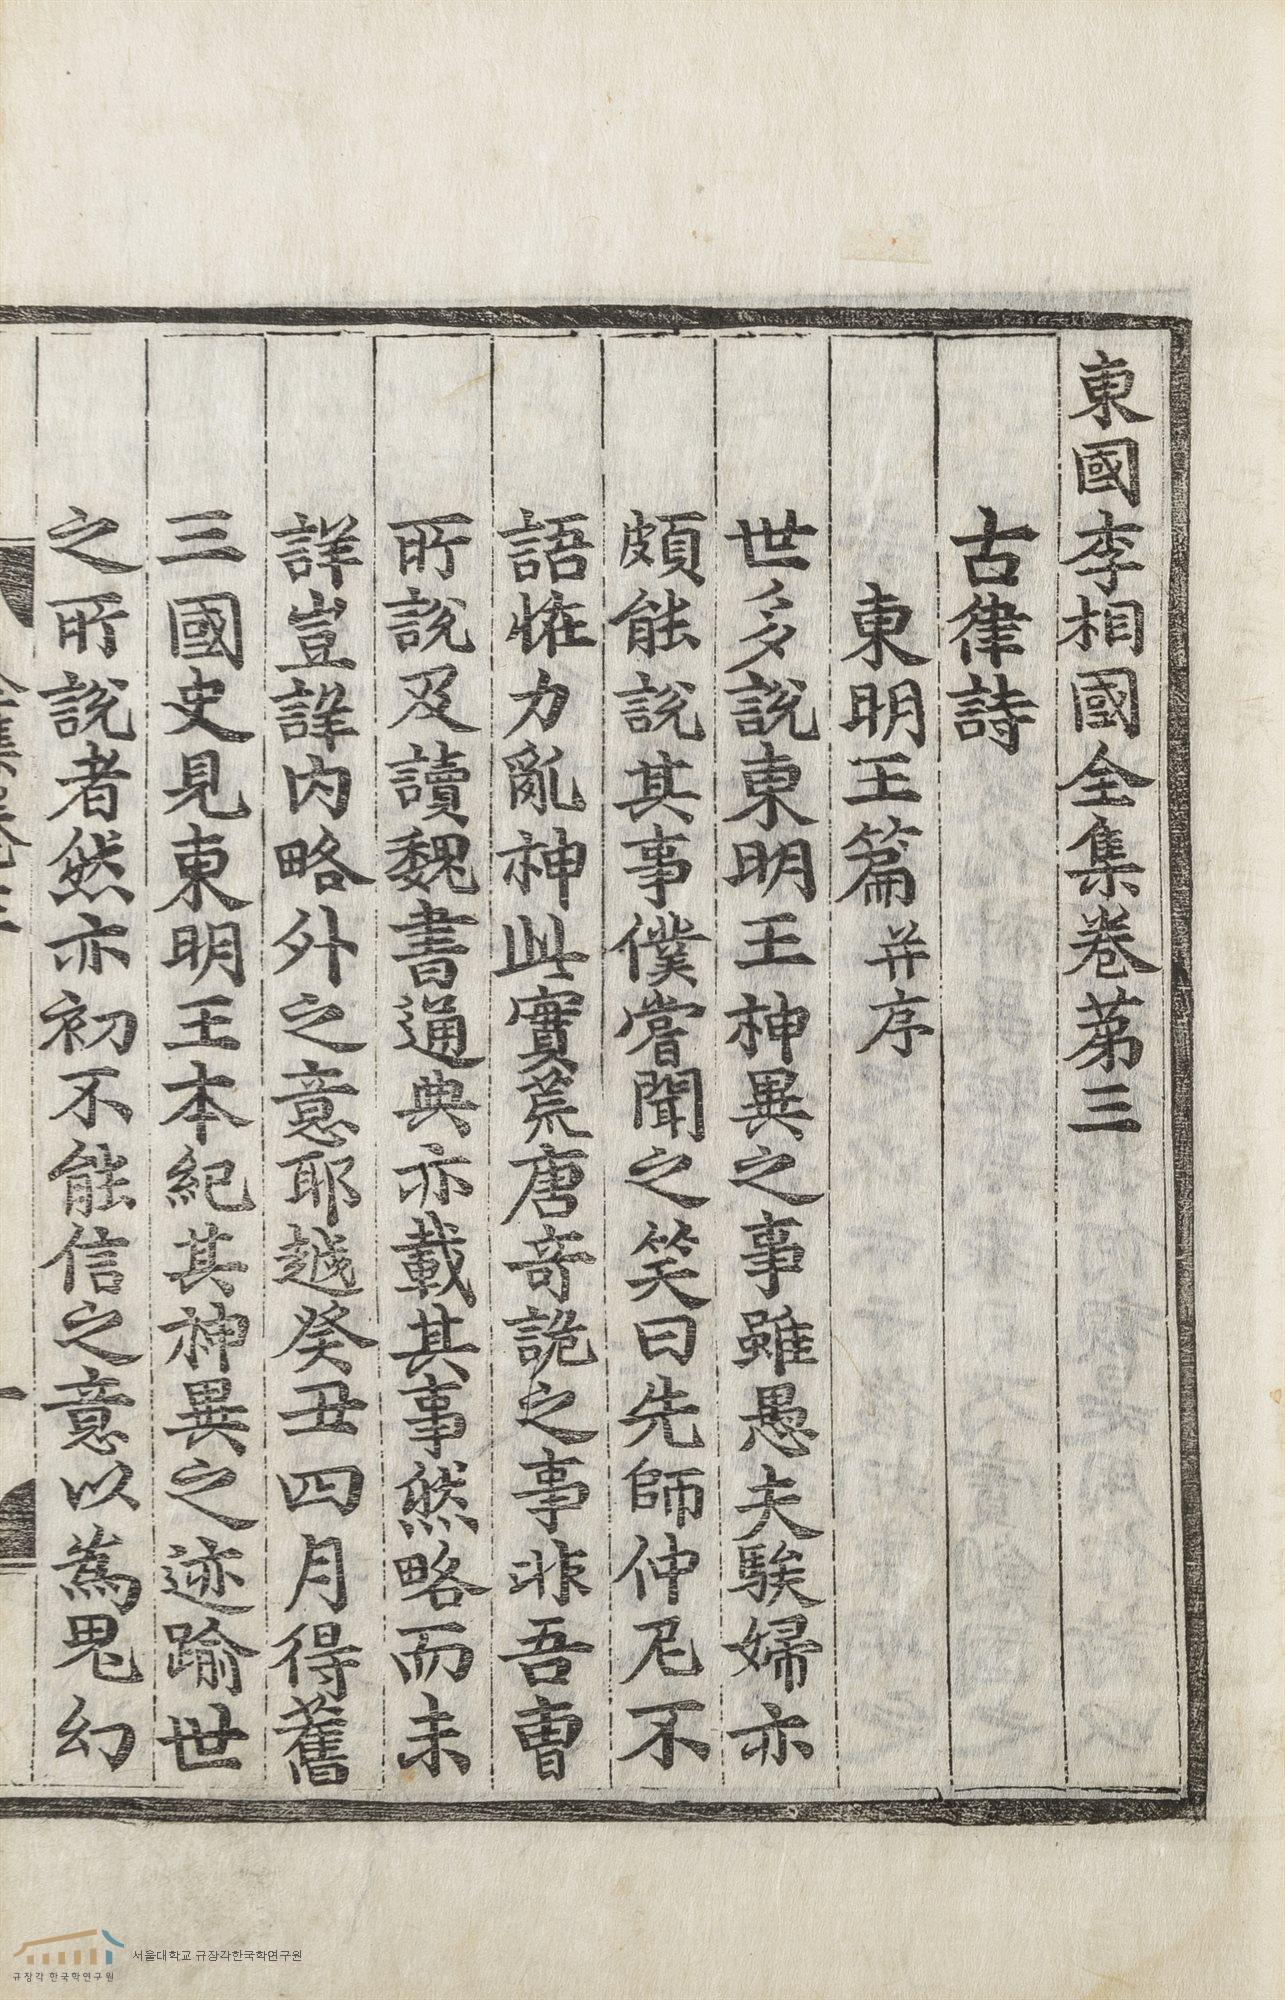 東國李相國全集卷第三
古律詩
東明王篇 并序
世多說東明王神異之事雖愚夫騃婦亦
頗能說其事僕嘗聞之笑曰先師仲尼不
語恠力亂神此實荒唐奇詭之事非吾曹
所說及讀魏書通典亦載其事然略而未
詳豈詳內略外之意耶越癸丑四月得舊
三國史見東明王本紀其神異之迹踰世
之所說者然亦初不能信之意以爲鬼幻
서울대학교 규장각한국학연구원
규장각 한국학연구원